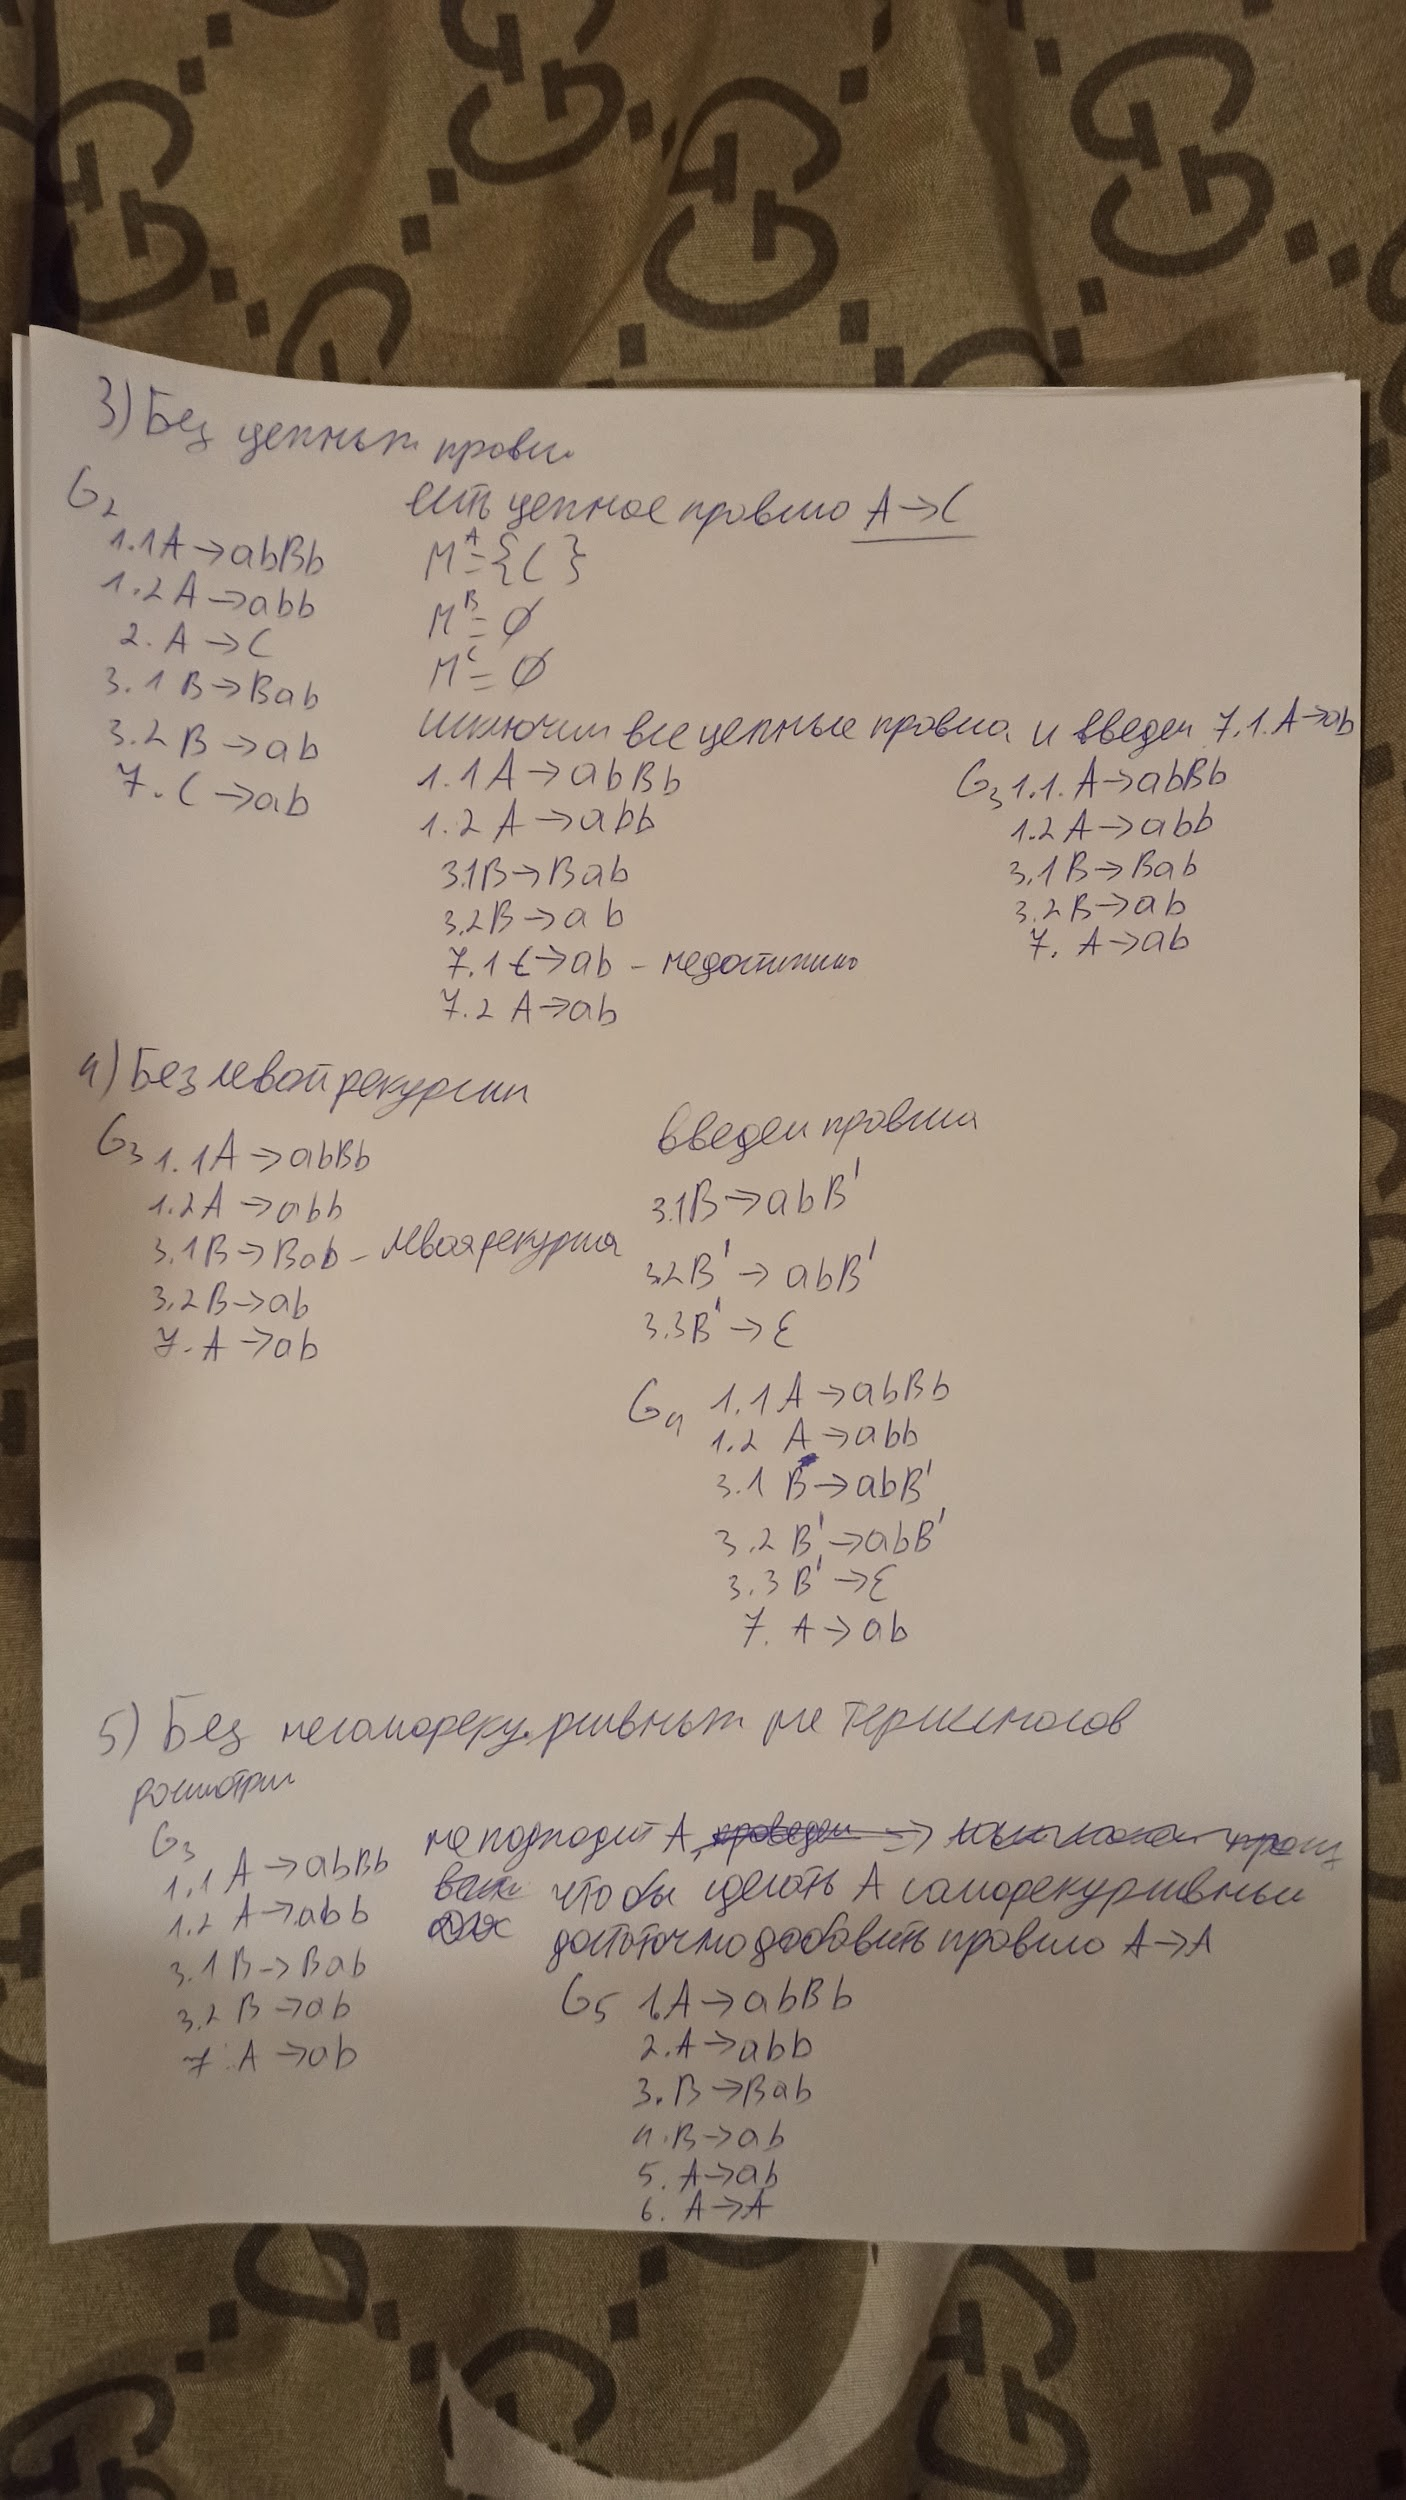 3) Без цепных правил
G2
1.1 A → abBb
1.2 A → abb
2. A → C
3.1 B → Bab
3.2 B → ab
7. C → ab
есть цепное правило A → C
M^A = {C}
M^B = ∅
M^C = ∅
исключим все цепные правила и введем 7.1. A → ab
1.1 A → abBb
1.2 A → abb
3.1 B → Bab
3.2 B → ab
7.1 C → ab - недостижимо
7.2 A → ab
G3 1.1. A → abBb
1.2 A → abb
3.1 B → Bab
3.2 B → ab
7. A → ab
4) Без левой рекурсии
G3 1.1 A → abBb
1.2 A → abb
3.1 B → Bab - левая рекурсия
3.2 B → ab
7. A → ab
введем правила
3.1 B → abB'
3.2 B' → abB'
3.3 B' → ε
G4 1.1 A → abBb
1.2 A → abb
3.1 B → abB'
3.2 B' → abB'
3.3 B' → ε
7. A → ab
5) Без несаморекурсивных не терминалов
G3
1.1 A → abBb
1.2 A → abb
3.1 B → Bab
3.2 B → ab
7. A → ab
не подходит A,
чтобы сделать A саморекурсивным
достаточно добавить правило A → A
G5 1. A → abBb
2. A → abb
3. B → Bab
4. B → ab
5. A → ab
6. A → A